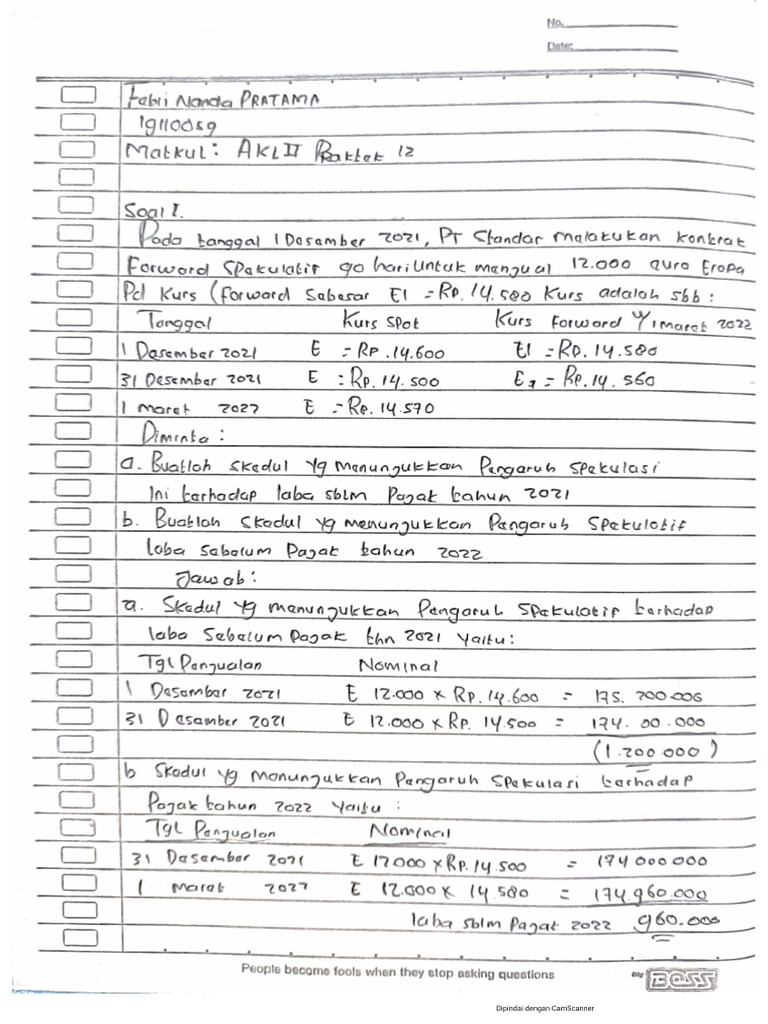 No.
Date:
Febri Nanda PRATAMA
19110059
Matkul: AKL II Praktek 12
Soal I.
Pada tanggal 1 Desember 2021, PT Standar melakukan kontrak
Forward Spekulatif 90 hari untuk menjual 12.000 euro Eropa
Pd Kurs (forward Sebesar E1 = Rp. 14.580 Kurs adalah sbb :
Tanggal Kurs Spot Kurs Forward U/ 1 maret 2022
1 Desember 2021 E = Rp. 14.600 E1 = Rp. 14.580
31 Desember 2021 E = Rp. 14.500 E1 = Rp. 14.560
1 Maret 2022 E = Rp. 14.570
Diminta :
a. Buatlah Skedul yg Menunjukkan Pengaruh Spekulasi
Ini terhadap laba sblm Pajak tahun 2021
b. Buatlah Skedul yg menunjukkan Pengaruh Spekulatif
laba Sebelum Pajak tahun 2022
Jawab :
a. Skedul yg menunjukkan Pengaruh Spekulatif terhadap
laba Sebelum Pajak thn 2021 yaitu :
Tgl Penjualan Nominal
1 Desember 2021 E 12.000 x Rp. 14.600 = 175. 200.000
31 Desember 2021 E 12.000 x Rp. 14.500 = 174. 00.000
(1.200.000)
b Skedul yg Menunjukkan Pengaruh Spekulasi terhadap
Pajak tahun 2022 yaitu :
Tgl Penjualan Nominal
31 Desember 2021 E 12000 x Rp. 14.500 = 174000000
1 maret 2022 E 12.000 x 14 580 = 174.960.000
laba sblm Pajak 2022 960.000
People become fools when they stop asking questions
Big BOSS
Dipindai dengan CamScanner